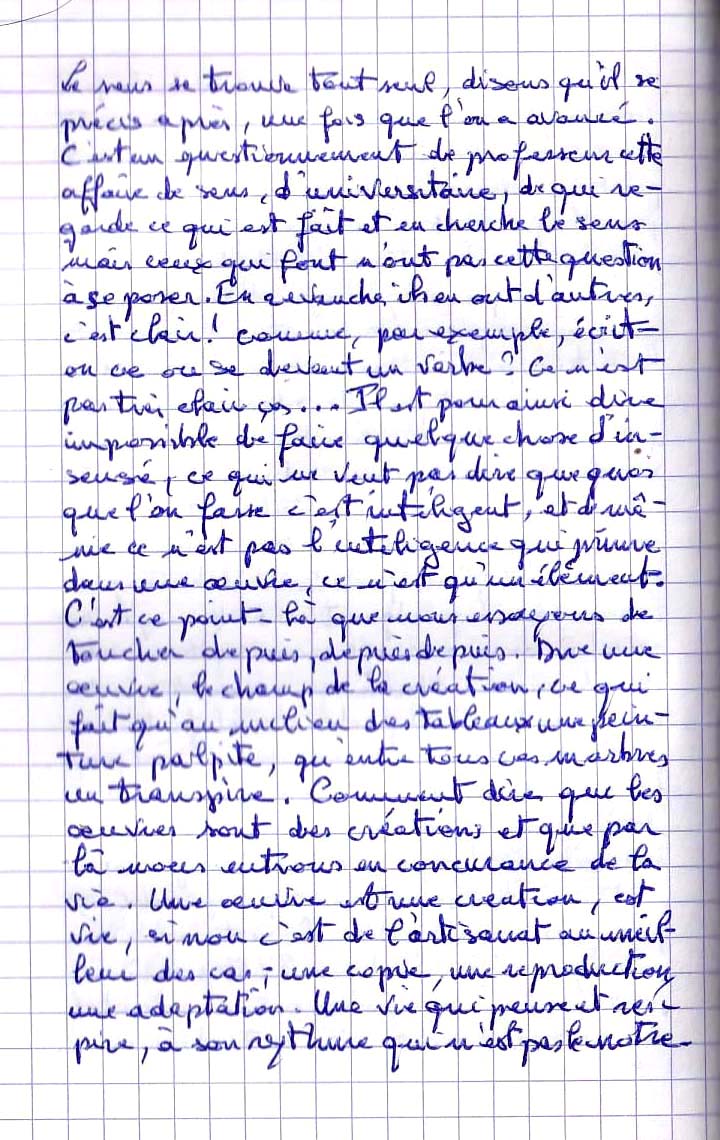 Le sens se trouve tout seul, disons qu'il se
précis après, une fois que l'on a avancé.
C'est un questionnement de professeur cette
affaire de sens, d'universitaire, de qui re-
garde ce qui est fait et en cherche le sens
mais ceux qui font n'ont pas cette question
à se poser. En revanche, ils en ont d'autres,
c'est clair ! comme, par exemple, écrit-
on ce ou se devant un verbe ? Ce n'est
pas très clair ça... Il est pour ainsi dire
impossible de faire quelque chose d'in-
sensé, ce qui ne veut pas dire que quoi
que l'on fasse c'est inteligent, et de mê-
me ce n'est pas l'inteligence qui prime
dans une œuvre, ce n'est qu'un élément.
C'est ce point-là que nous essayons de
toucher depuis, depuis depuis. Dire une
œuvre, le champ de la création, ce qui
fait qu'au milieu des tableaux une pein-
ture palpite, qu'entre tous ces marbres
un transpire. Comment dire que les
œuvres sont des créations et que par
là nous entrons en concurance de la
vie. Une œuvre est une creation, est
vie, sinon c'est de l'artisanat au meil-
leur des cas ; une copie, une reproduction,
une adaptation. Une vie qui pense et res-
pire, à son rythme qui n'est pas le notre.